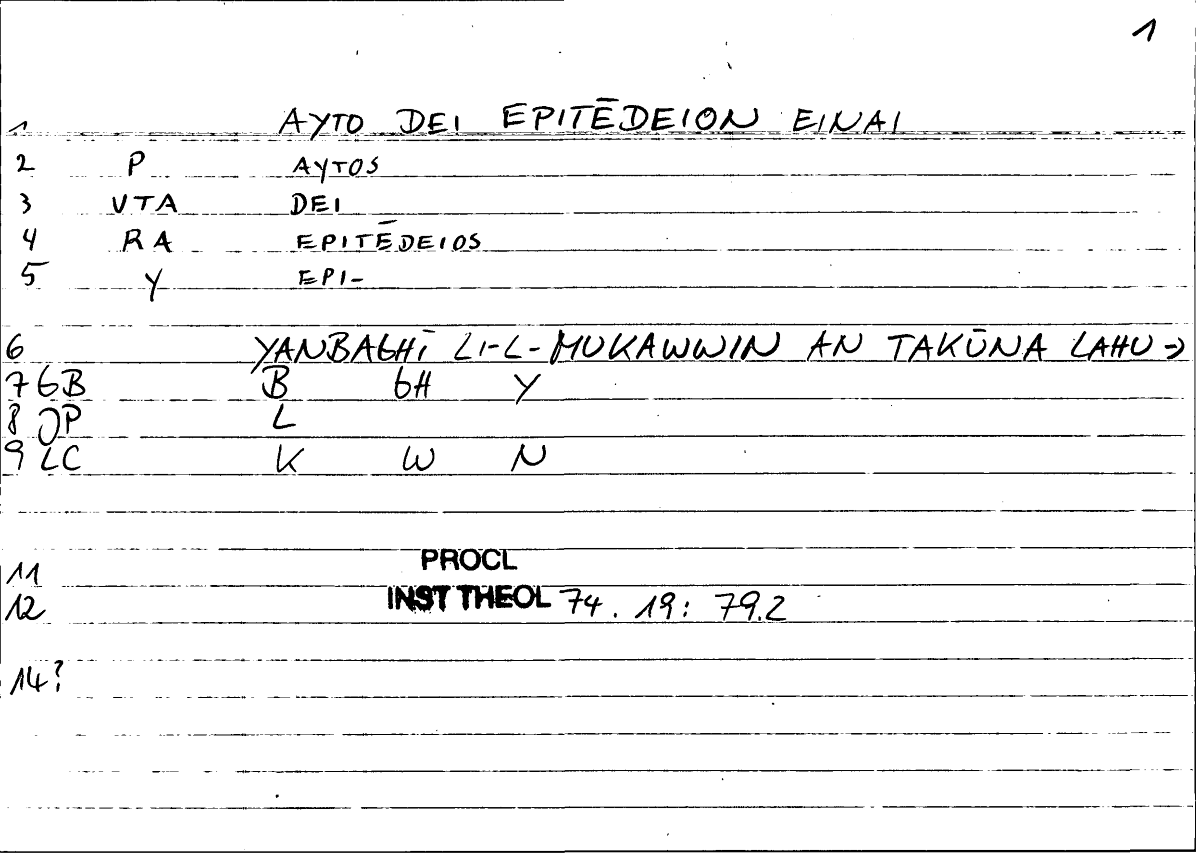 1
1 AYTO DEI EPITĒDEION EINAI
2 P AYTOS
3 VTA DEI
4 RA EPITĒDEIOS
5 Y EPI-
6 YANBAGHĪ LI-L-MUKAWWIN AN TAKŪNA LAHU →
7 GB B GH Y
8 OP L
9 LC K W N
11 PROCL
12 INST THEOL 74. 19: 79.2
14?